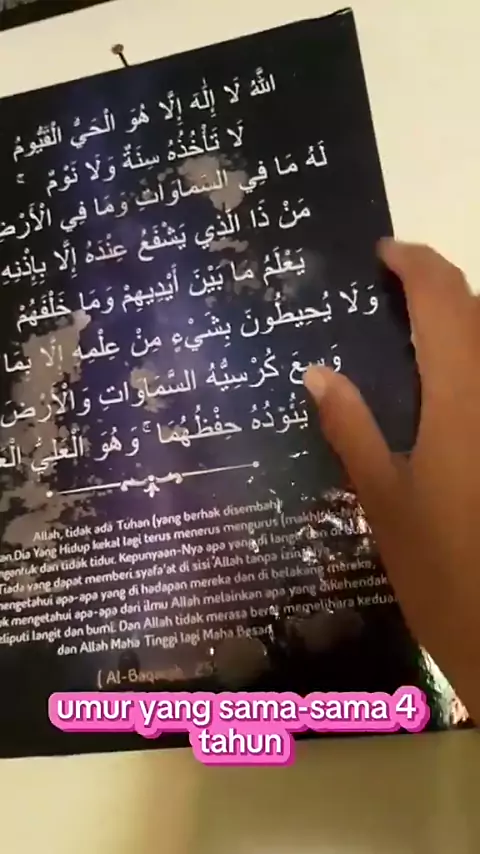 اللَّهُ لَا إِلَٰهَ إِلَّا هُوَ الْحَيُّ الْقَيُّومُ
لَا تَأْخُذُهُ سِنَةٌ وَلَا نَوْمٌ ۚ
لَهُ مَا فِي السَّمَاوَاتِ وَمَا فِي الْأَرْضِ
مَنْ ذَا الَّذِي يَشْفَعُ عِنْدَهُ إِلَّا بِإِذْنِهِ
يَعْلَمُ مَا بَيْنَ أَيْدِيهِمْ وَمَا خَلْفَهُمْ
وَلَا يُحِيطُونَ بِشَيْءٍ مِنْ عِلْمِهِ إِلَّا بِمَا
وَسِعَ كُرْسِيُّهُ السَّمَاوَاتِ وَالْأَرْضَ
يَئُودُهُ حِفْظُهُمَا ۚ وَهُوَ الْعَلِيُّ
Allah, tidak ada Tuhan (yang berhak disembah)
Dia Yang Hidup kekal lagi terus menerus mengurus
dan tidak tidur. Kepunyaan-Nya apa yang di langit dan di
Tiada yang dapat memberi syafa'at di sisi Allah tanpa
mengetahui apa-apa yang di hadapan mereka dan di belakang mereka,
mengetahui apa-apa dari ilmu Allah melainkan apa yang dikehendaki
meliputi langit dan bumi. Dan Allah tidak merasa berat memelihara
dan Allah Maha Tinggi lagi Maha Besar
(Al-Baqarah
umur yang sama-sama 4
tahun